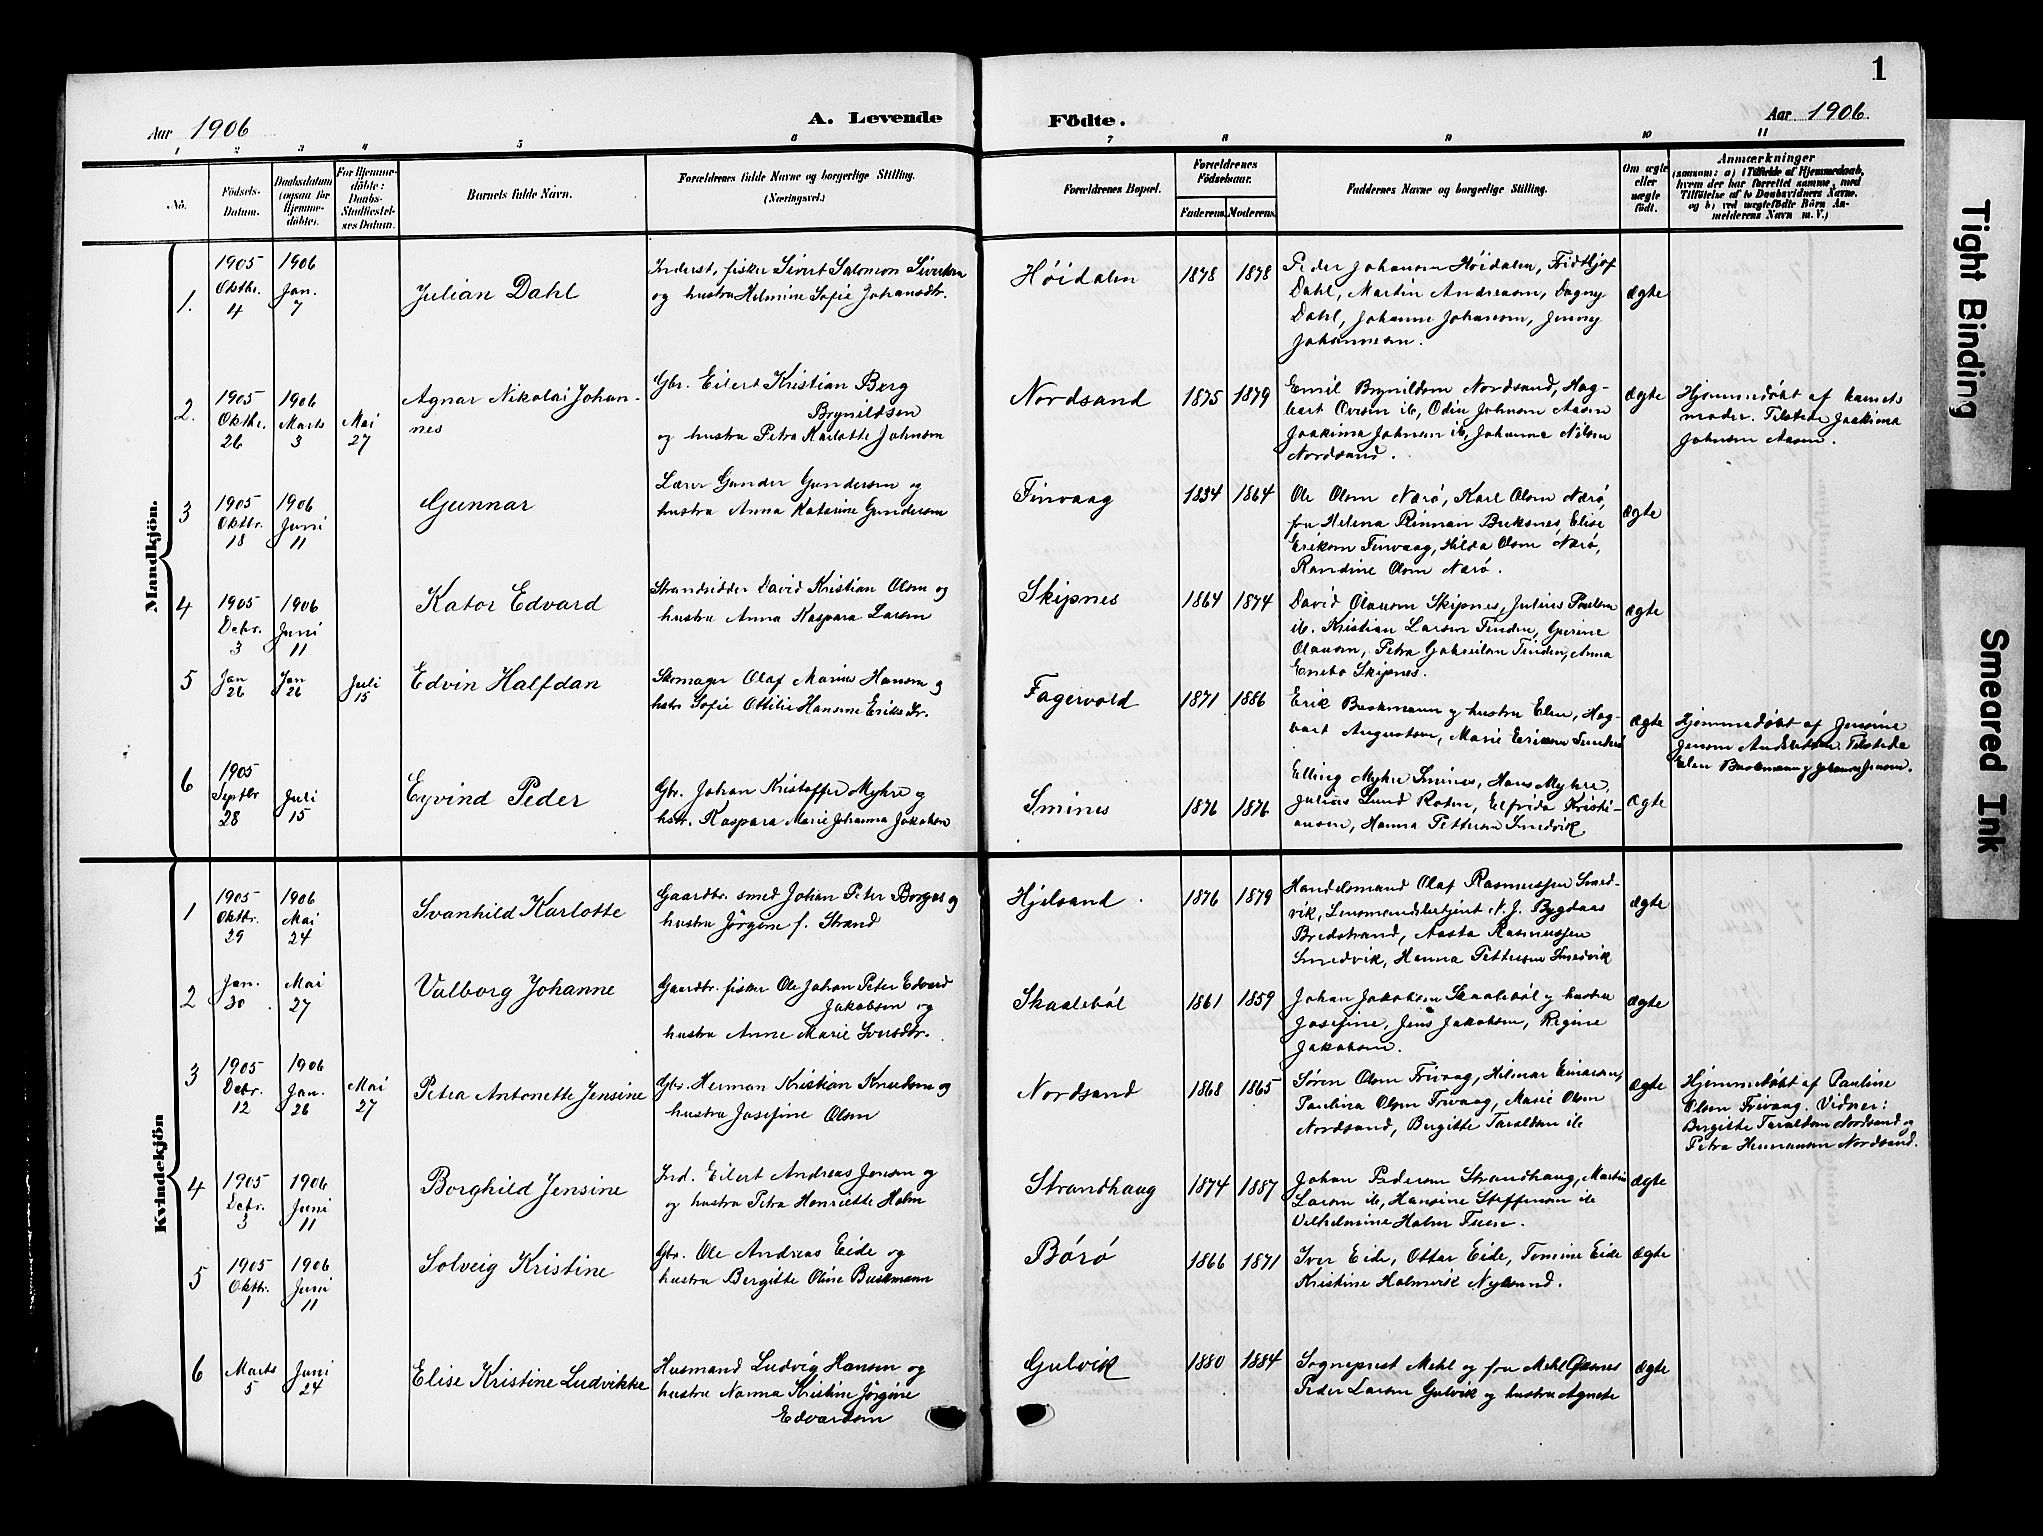 1
Aar 1906
A. Levende Födte.
Aar 1906.
1 2 3 4 5 6 7 8 9 10 11
No.
Födsels-
Datum.
Daabsdatum
(ogsaa for
Hjemme-
döbte).
For Hjemme-
döbte:
Daabs-
Stadfæstel-
ses Datum.
Barnets fulde Navn.
Forældrenes fulde Navne og borgerlige Stilling.
(Næringsvei.)
Forældrenes Bopæl.
Forældrenes
Födselsaar.
Faderens. Moderens.
Faddernes Navne og borgerlig Stilling.
Om ægte
eller
uægte
födt.
Anmærkninger
(saasom: a) i Tilfælde af Hjemmedaab,
hvem der har forrettet samme, med
Tilföielse af to Daabsvidners Navne.
og b) ved uægtefödte Börn An-
melderens Navn m. V.)
Mandkjön.
1.
1905
Oktbr.
4
1906
Jan.
7
Julian Dahl
Inderst, fisker Sivert Salomon Sivertsen
og hustru Helmine Sofie Johansdtr.
Høidalen
1878 1878
Peder Johansen Høidalen, Fridthjof
Dahl, Martin Andreasen, Dagny
Dahl, Johanne Johansen, Jenny
Johannesen.
ægte
2.
1905
Oktbr.
26
1906
Marts
3
Mai
27
Agnar Nikolai Johan-
nes
Gbr. Eilert Kristian Berg
Brynildsen
og hustru Petra Karlotte Johnsen
Nordsand
1875 1879
Emil Brynildsen Nordsand, Hag-
bart Oversen ib, Odin Johnsen Aasen
Joakima Johnsen ib, Johanna Nilsen
Nordsand.
ægte
Hjemmedøbt af barnets
moder. Tilstede Joakima
Johnsen Aasen.
3
1905
Oktbr.
18
1906
Juni
11
Gunnar
Lærer Gunder Gundersen og
hustru Anna Katarine Gundersen
Finvaag
1834 1864
Ole Olsen Nærø, Karl Olsen Nærø,
fru Helena Rinnan Buksnes, Elise
Eriksen Finvaag, Hilda Olsen Nærø,
Randine Olsen Nærø.
ægte
4
1905
Debr.
3
1906
Juni
11
Kator Edvard
Strandsidder David Kristian Olsen og
hustru Anna Kaspara Larsen
Skipnes
1864 1874
David Olausen Skipnes, Julius Paulsen
ib. Kristian Larsen Tinden, Gurine
Olausen, Petra Gabrielsen Tinden, Anna
Enebo Skipnes.
ægte
5
Jan
26
Jan
26
Juli
15
Edvin Halfdan
Skomager Olaf Marius Hansen og
hstr. Sofie Ottilie Hansine Eriksdr.
Fagervold
1871 1886
Erik Buckmann og hustru Elen, Hag-
bart Augustsen, Marie Eriksen
ægte
Hjemmedøbt af Jensine
Jensen Tilstede
Elen Buckmann og Johanna Jensen.
6
1905
Septbr
28
Juli
15
Eyvind Peder
Gbr. Johan Kristoffer Myhre og
hstr. Kaspara Marie Johanna Jakobsen
Smines
1876 1876
Elling Myhre Smines, Hans Myhre,
Julius Lund Roten, Elfrida Kristi-
ansen, Hanna Pettersen Smedvik
ægte
Kvindekjön
1
1905
Oktbr.
29
1906
Mai
24
Svanhild Karlotte
Gaardbr. smed Johan Peter Borgos og
hustru Jørgine f. Strand
Hjelsand
1876 1879
Handelsmand Olaf Rasmussen Smed-
vik, Lensmandsbetjent N. J. Bygdaas
Bredstrand, Aasta Rasmussen
Smedvik, Hanna Pettersen Smedvik
ægte
2
Jan.
30
Mai
27
Valborg Johanne
Gaardbr. fisker Ole Johan Peter Edvard
Jakobsen og
hustru Anne Marie Iversdtr.
Skaalebøl
1861 1859
Johan Jakobsen Skaalebøl og hustru
Josefine, Jens Jakobsen, Regine
Jakobsen.
ægte
3
1905
Debr.
12
1906
Jan.
26
Mai
27
Petra Antonette Jensine
Gbr. Herman Kristian Knudsen og
hustru Josefine Olsen
Nordsand
1868 1865
Søren Olsen Frivaag, Hilmar Einarsen,
Paulina Olsen Frivaag, Marie Olsen
Nordsand, Bergitte Taraldsen ib
ægte
Hjemmedøbt af Pauline
Olsen Frivaag. Vidner:
Bergitte Taraldsen Nordsand og
Petra Hermansen Nordsand.
4
1905
Debr.
3
1906
Juni
11
Borghild Jensine
Ind. Eilert Andreas Jensen og
og hustru Petra Henriette Holm
Strandhaug
1874 1887
Johan Pedersen Strandhaug, Martin
Larsen ib, Hansine Steffensen ib
Vilhelmine Holm Tuen.
ægte
5
1905
Oktbr.
1
1906
Juni
11
Solveig Kristine
Gbr. Ole Andreas Eide og
hustru Bergitte Oline Buckmann
Børø
1866 1871
Iver Eide, Ottar Eide, Tomine Eide
Kristine Holmvik Nyksund.
ægte
6
Marts
5
Juni
24
Elise Kristine Ludvikke
Husmand Ludvig Hansen og
hustru Nanna Kristine Jørgine
Edvardsen
Gulvik
1880 1884
Sogneprest Mehl og fru Mehl Gisnes
Peder Larsen Gulvik og hustru Agnete
ægte
Tight Binding
Smeared Ink